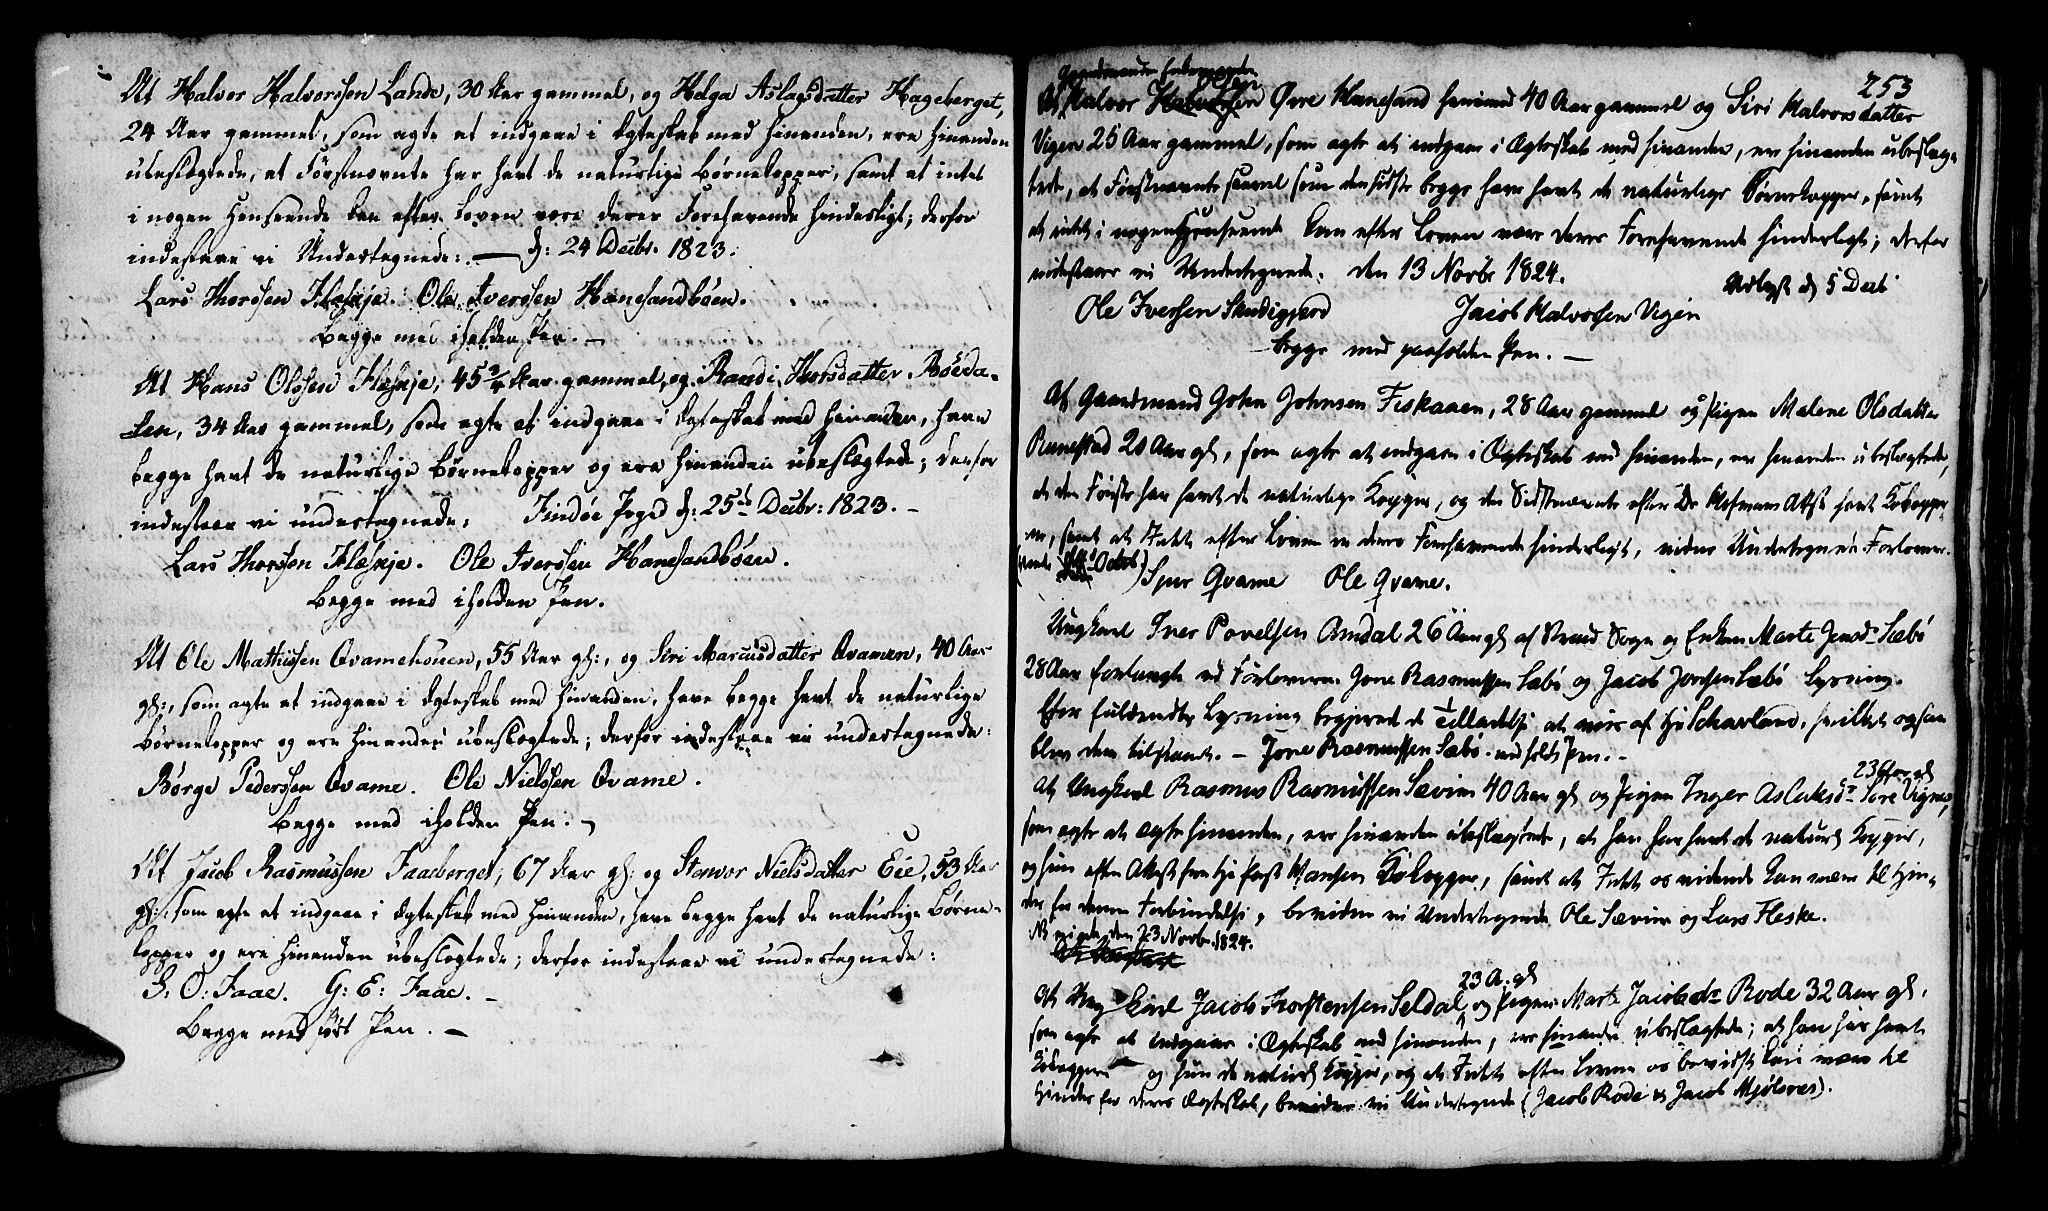 At Halvor Halvorssen Lande, 30 Aar gammel, og Helga Aslagsdatter Hageberget,
24 Aar gammel, som agte at indgaae i Ægteskab med hinanden, ere hinanden
ubeslægtede, at Førstnævnte har havt de naturlige Børnekopper, samt at intet
i nogen Henseende kan efter Loven være deres Forehavende hinderligt; derfor
indestaae vi Undertegnede: — d: 24 Decbr. 1823.
Lars Thorssen Flesje. Ole Iverssen Hanesandbøen.
Begge med iholden Pen. —
At Hans Olssen Flesje, 45 3/4 Aar gammel, og Randi Thorsdatter Bøeda-
len, 34 Aar gammel, som agte at indgaae i Ægteskab med hinanden, have
begge havt de naturlige Børnekopper og ere hinanden ubeslægtede; derfor
indestaae vi undertegnede; Findøe Prgd d: 25de Decbr: 1823. —
Lars Thorssen Flesje. Ole Iverssen Hanesandbøen.
Begge med iholden Pen.
At Ole Mathissen Qvamehouen, 55 Aar gl:, og Siri Marcusdatter Qvamen, 40 Aar
gl:, som agte at indgaae i Ægteskab med hinanden, have begge havt de naturlige
Børnekopper og ere hinanden ubeslægtede; derfor indestaae vi undertegnede:
Børge Pederssen Qvame. Ole Nielssen Qvame.
Begge med iholden Pen. —
At Jacob Rasmussen Faaeberget, 67 Aar gl: og Stenvor Nielsdatter Eie, 53 Aar
gl:, som agte at indgaae i Ægteskab med hinanden, have begge havt de naturlige Børne-
kopper og ere hinanden ubeslægtede; derfor indestaae vi undertegnede:
J: O: Faae. G: E: Faae. —
Begge med ført Pen. —
253
Gaardmand Enkemanden
At Halvor Øvre Hanesand henimod 40 Aar gammel og Siri Halvorsdatter
Vigen 25 Aar gammel, som agte at indgaae i Ægteskab med hinanden, ere hinanden ubeslæg-
tede, at Førstnævnte saavel som den sidste begge have havt de naturlige Børnekopper, samt
at intet i nogen Henseende kan efter Loven være deres Forehavende hinderligt; derfor
indestaae vi Undertegnede. den 13 Novbr 1824.
Udlyst d 5 Decb
Ole Iversen Jacob Halvorsen Vigen
begge med paaholden Pen. —
At Gaardmand John Johnsen Fiskaaen, 28 Aar gammel og Pigen Malene Olsdatter
Runestad 20 Aar gl, som agte at indgaae i Ægteskab med hinanden, ere hinanden ubeslægtede,
at den Første har havt de naturlige Kopper, og den Sidstnævnte efter Dr Hofmans Attest havt Kokopper-
ne, samt at Intet efter Loven er deres Forehavende hinderligt, vidner Undertegnede Forlovere.
Sjur Qvame Ole Qvame.
Ungkarl Iver Povelsen Amdal 26 Aar gl af Strand Sogn og Enken Marte Jensdr Sæbø
28 Aar forlangte ved Forloverne Jone Rasmussen Sæbø og Jacob Jonsen Sæbø Lysning.
Efter fuldendte Lysning begjered de Tilladelse at vies af Hr Scharland, hvilket ogsaa
blev dem tilstaaet. — Jone Rasmussen Sæbø med holdt Pen. —
23 Aar gl
At Ungkarl Rasmus Rasmussen Sævim 40 Aar gl og Pigen Inger Aslaksdr Søre Vignes,
som agte at ægte hinanden, ere hinanden ubeslægtede, at han har havt de naturl Kopper,
og hun efter Attest fra Hr Prost Hansen Kokopper, samt at Intet os vidende kan være til Hin-
der for denne Forbindelse, bevidne vi Undertegnede Ole Sævim og Lars Fleske.
den 23 Novbr. 1824.
23 A. gl
At Ungkarl Jacob Torstensen Seldal, og Pigen Marte Jacobsdr Rode 32 Aar gl,
som agte at indgaae i Ægteskab med hinanden, ere hinanden ubeslægtede; at han har havt
Kokopper og hun de naturl Kopper, og at Intet efter Loven os bevidst kan være til
Hinder for deres Ægteskab, bevidner vi Undertegnede (Jacob Rode og Jacob Mjølsnes).